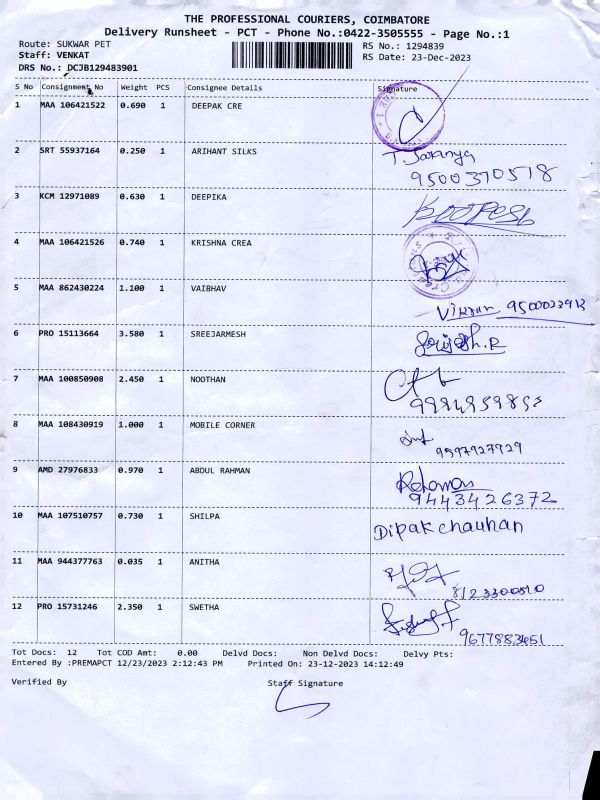 THE PROFESSIONAL COURIERS, COIMBATORE
Delivery Runsheet - PCT - Phone No.:0422-3505555 - Page No.:1
Route: SUKWAR PET
RS No.: 1294839
Staff: VENKAT
RS Date: 23-Dec-2023
DRS No.: DCJB129483901
S No Consignment No Weight PCS Consignee Details Signature
1 MAA 106421522 0.690 1 DEEPAK CRE
2 SRT 55937164 0.250 1 ARIHANT SILKS
9500370518
3 KCM 12971089 0.630 1 DEEPIKA
4 MAA 106421526 0.740 1 KRISHNA CREA
5 MAA 862430224 1.100 1 VAIBHAV
6 PRO 15113664 3.580 1 SREEJARMESH
7 MAA 100850908 2.450 1 NOOTHAN
8 MAA 108430919 1.000 1 MOBILE CORNER
9597927929
9 AMD 27976833 0.970 1 ABDUL RAHMAN
9443426372
10 MAA 107510757 0.730 1 SHILPA Dipak chauhan
11 MAA 944377763 0.035 1 ANITHA
12 PRO 15731246 2.350 1 SWETHA
9677883451
Tot Docs: 12 Tot COD Amt: 0.00 Delvd Docs: Non Delvd Docs: Delvy Pts:
Entered By :PREMAPCT 12/23/2023 2:12:43 PM Printed On: 23-12-2023 14:12:49
Verified By Staff Signature